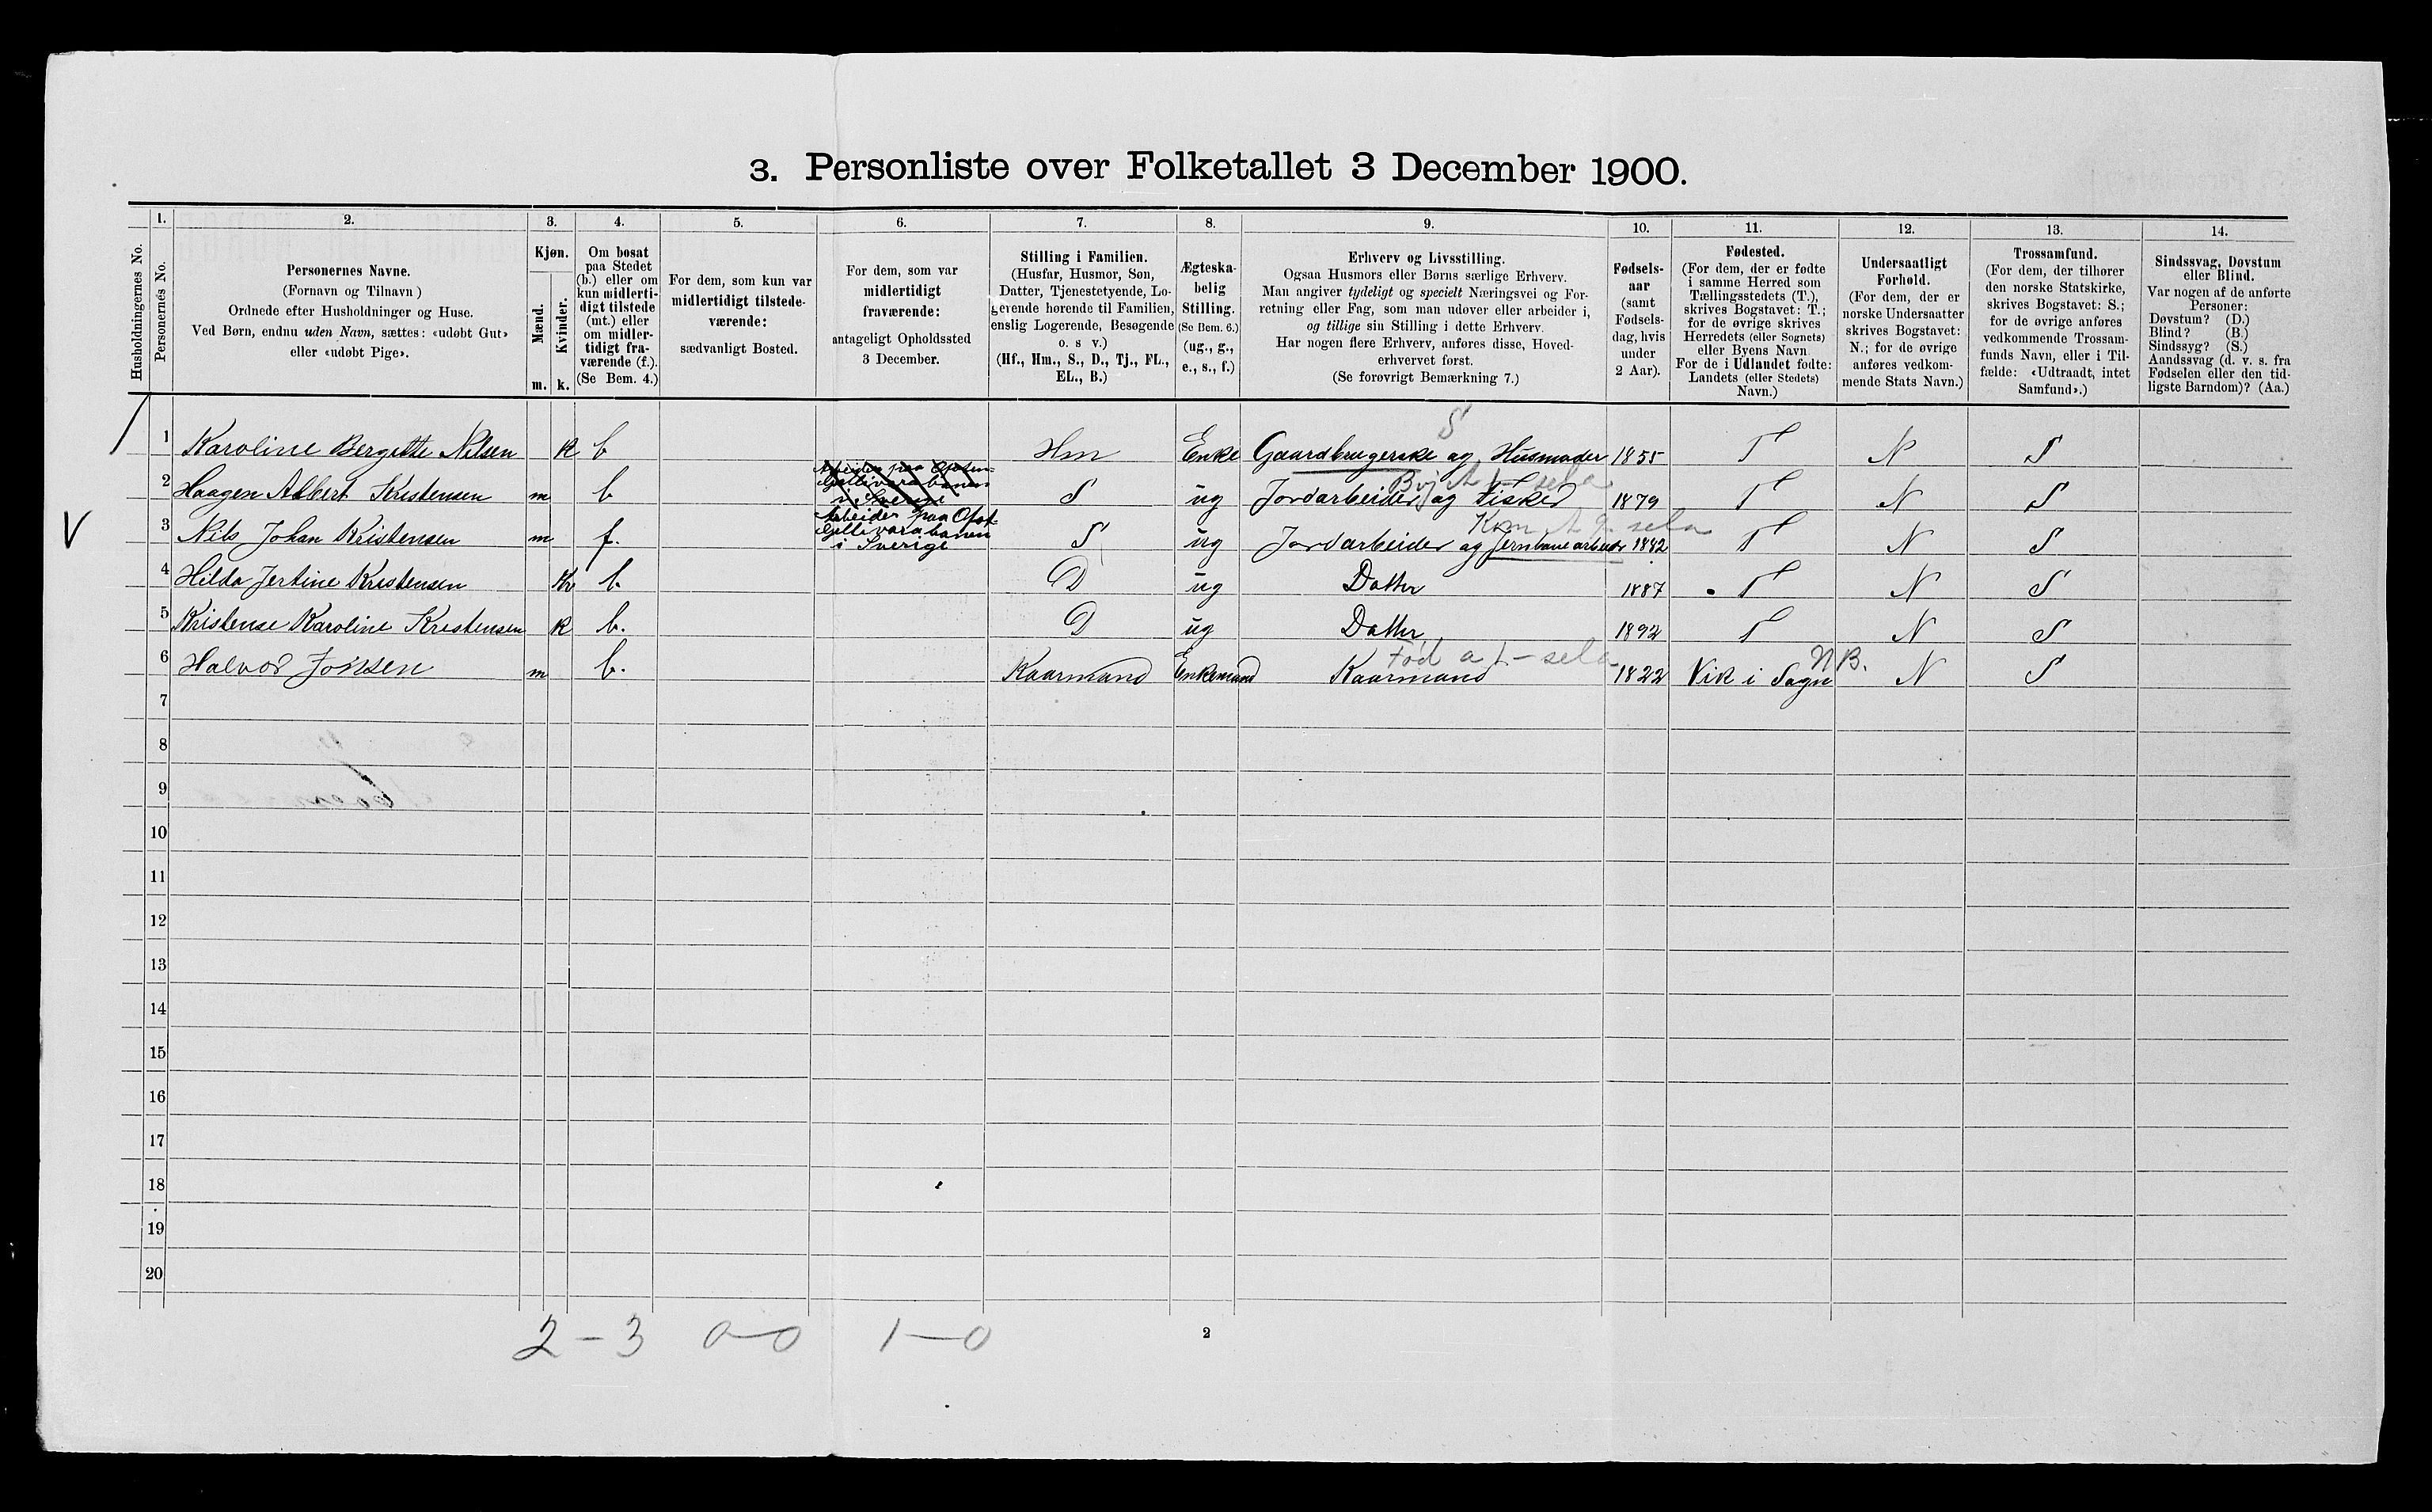 3. Personliste over Folketallet 3 December 1900.
1. 2. 3. 4. 5. 6. 7. 8. 9. 10. 11. 12. 13. 14.
Husholdningernes No.
Personernes No.
Personernes Navne.
(Fornavn og Tilnavn)
Ordnede efter Husholdninger og Huse.
Ved Børn, endnu uden Navn, sættes: «udøbt Gut»
eller «udøbt Pige».
Kjøn.
Mænd.
Kvinder.
m. k.
Om bosat
paa Stedet
(b.) eller om
kun midlerti-
digt tilstede
(mt.) eller
om midler-
tidigt fra-
værende (f.).
(Se Bem. 4.)
For dem, som kun var
midlertidigt tilstede-
værende:
sædvanligt Bosted.
For dem, som var
midlertidigt
fraværende:
antageligt Opholdssted
3 December.
Stilling i Familien.
(Husfar, Husmor, Søn,
Datter, Tjenestetyende, Lo-
gerende hørende til Familien,
enslig Logerende, Besøgende
o. s v.)
(Hf., Hm., S., D., Tj., FL.,
EL., B.)
Ægteska-
belig
Stilling.
(Se Bem. 6.)
(ug., g.,
e., s., f.)
Erhverv og Livsstilling.
Ogsaa Husmors eller Børns særlige Erhverv.
Man angiver tydeligt og specielt Næringsvei og For-
retning eller Fag, som man udøver eller arbeider i,
og tillige sin Stilling i dette Erhverv.
Har nogen flere Erhverv, anføres disse, Hoved-
erhvervet først.
(Se forøvrigt Bemærkning 7.)
Fødsels-
aar
(samt
Fødsels-
dag, hvis
under
2 Aar).
Fødested.
(For dem, der er fødte
i samme Herred som
Tællingsstedets (T.),
skrives Bogstavet: T.;
for de øvrige skrives
Herredets (eller Sognets)
eller Byens Navn
For de i Udlandet fødte:
Landets (eller Stedets)
Navn.)
Undersaatligt
Forhold.
(For dem, der er
norske Undersaatter
skrives Bogstavet:
N.; for de øvrige
anføres vedkom-
mende Stats Navn.)
Trossamfund.
(For dem, der tilhører
den norske Statskirke,
skrives Bogstavet: S.;
for de øvrige anføres
vedkommende Trossam-
funds Navn, eller i Til-
fælde: «Udtraadt, intet
Samfund».)
Sindssvag, Døvstum
eller Blind.
Var nogen af de anførte
Personer:
Døvstum? (D.)
Blind? (B.)
Sindssyg? (S.)
Aandssvag (d. v. s. fra
Fødselen eller den tid-
ligste Barndom)? (Aa.)
S
1 Karoline Bergitte Nilsen k b Hm Enke Gaardbrugerske og Husmoder 1855 T N S
Arbeider paa Ofoten-
Gellivarabanen
i Sverige
2 Haagen Albert Kristensen m b S ug Jordarbeider og Fisker 1879 T N S
Arbeider paa Ofot-
Gellivarabanen
i Sverige
V 3 Nils Johan Kristensen m f. S ug Jordarbeider og Jernbanearbeider 1882 T N S
4 Hilda Jertine Kristensen k b. D ug Datter 1887 T N S
5 Kristense Karoline Kristensen k b. D ug Datter 1892 T N S
6 Halvor Jonsen m b. Kaarmand Enkemand Kaarmand 1822 Vik i Sogn NB. N S
7
8
9
10
11
12
13
14
15
16
17
18
19
20
2 - 3 0-0 1-0
2